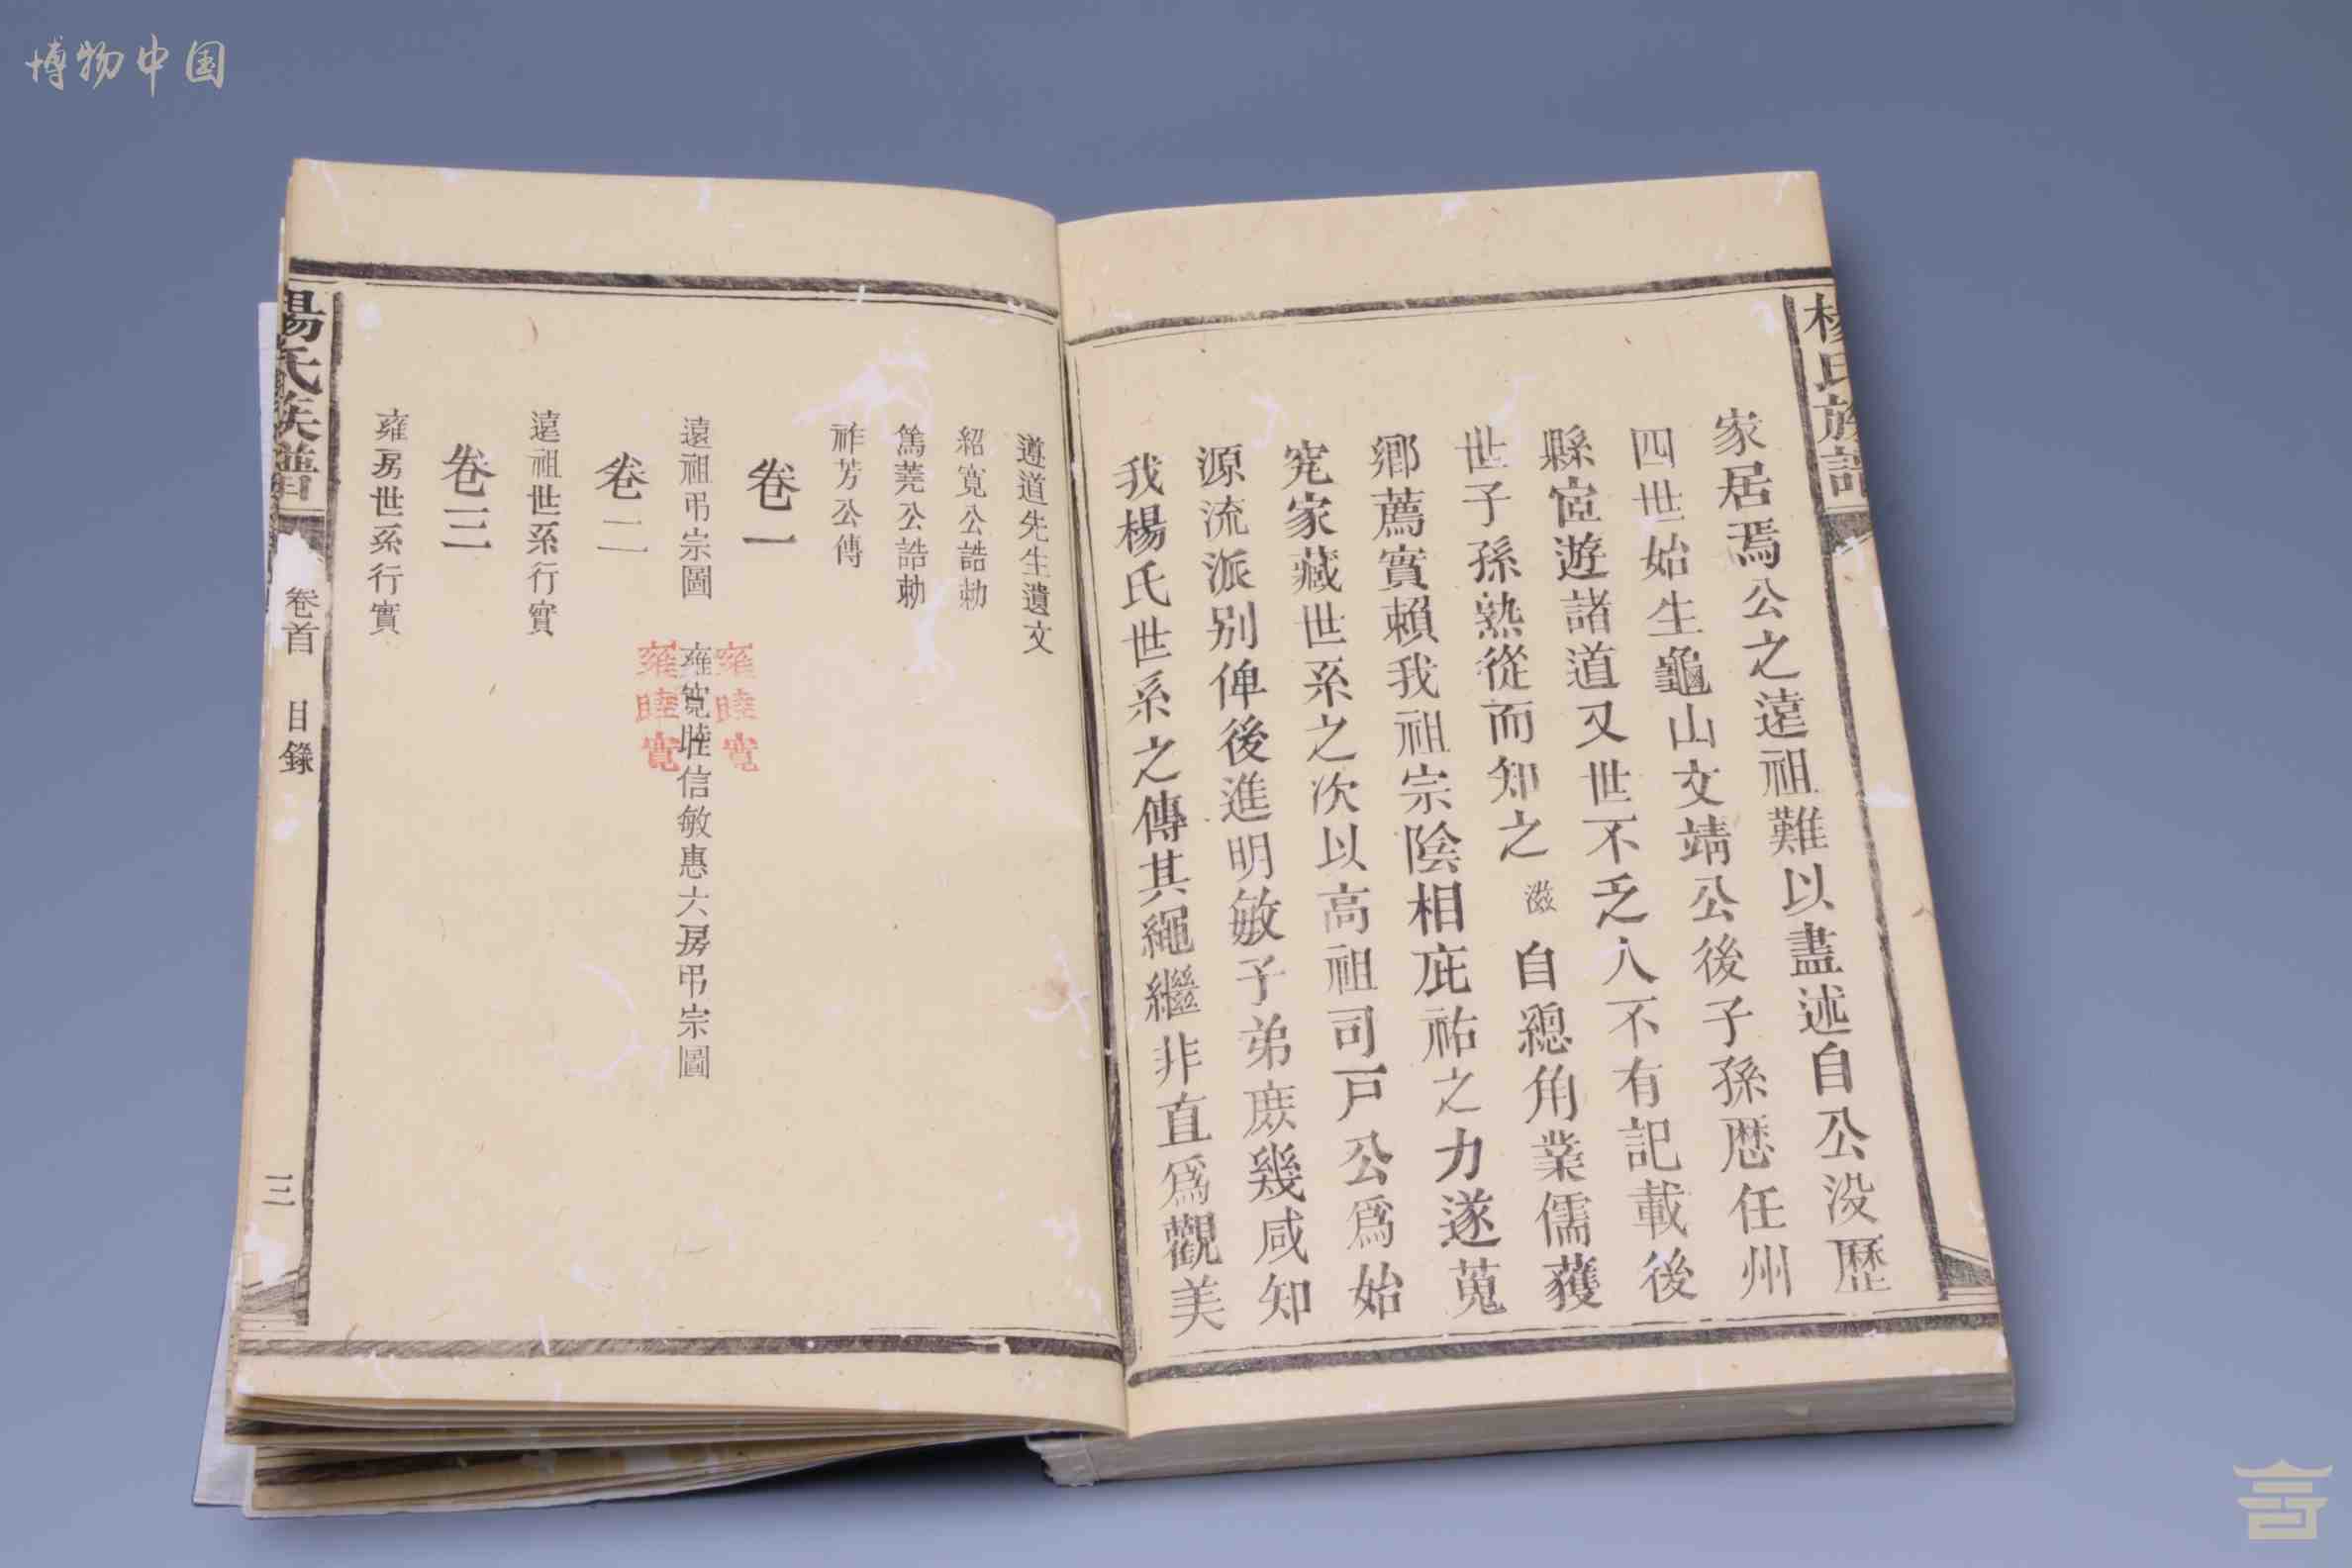 博物中国
楊氏族譜
家居焉公之遠祖難以盡述自公没歷
四世始生龜山文靖公後子孫歷任州
縣宦遊諸道又世不乏人不有記載後
世子孫熟從而知之 滋 自總角業儒獲
鄉薦實賴我祖宗陰相庇祐之力遂蒐
究家藏世系之次以高祖司戶公爲始
源流派别俾後進明敏子弟庶幾咸知
我楊氏世系之傳其繩繼非直爲觀美
遵道先生遺文
紹寬公誥勅
篤蕘公誥勅
祚芳公傳
卷一
遠祖弔宗圖 雍寬睦信敏惠六房弔宗圖
雍睦寬
雍睦寬
卷二
遠祖世系行實
卷三
雍房世系行實
楊氏族譜 卷首 目錄 三